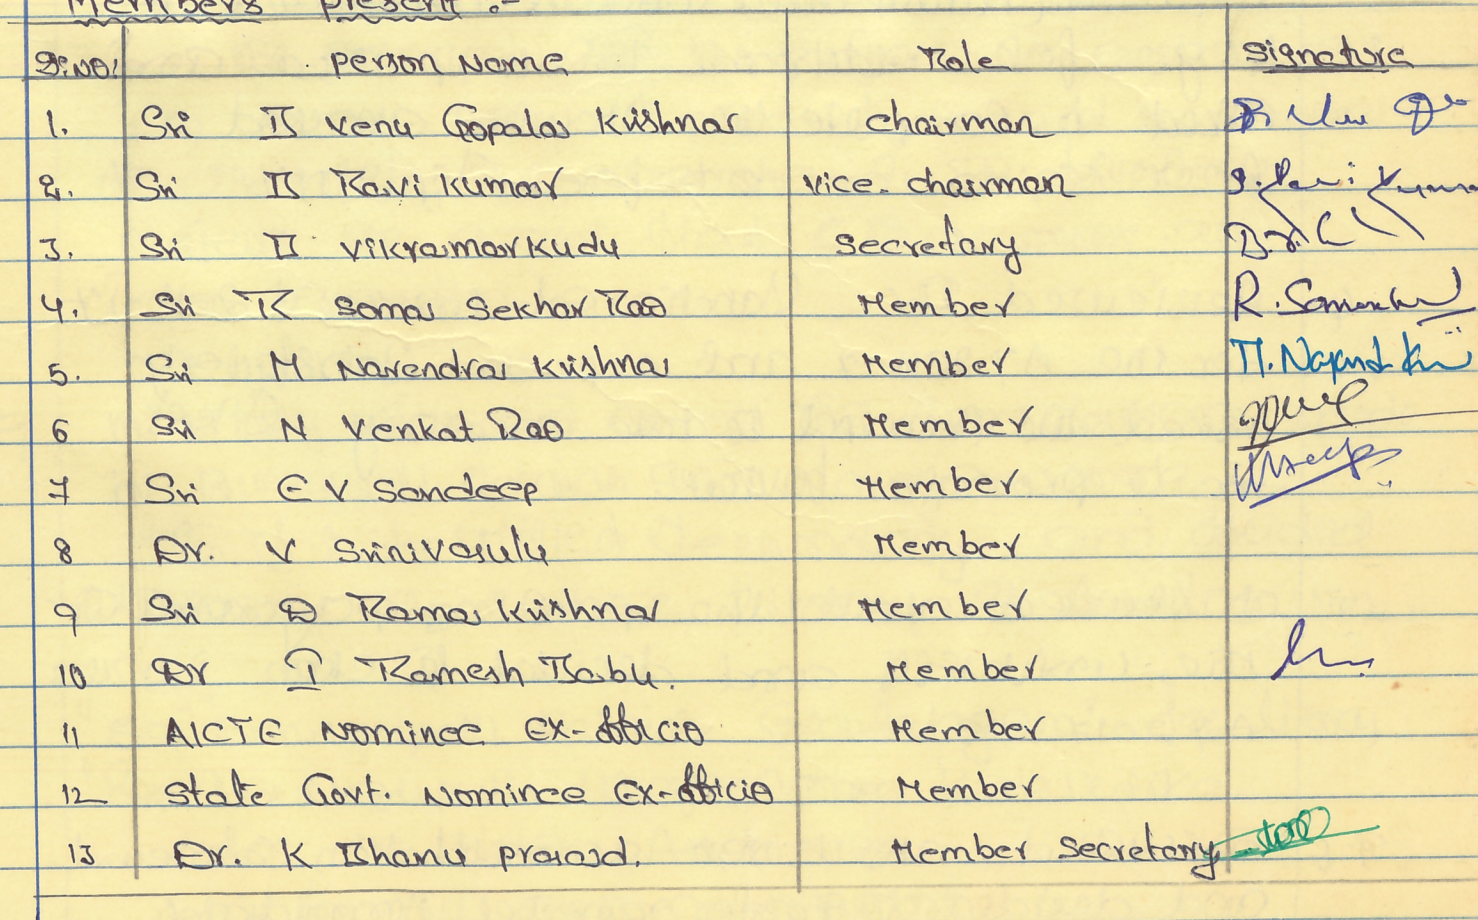 Members present :-
Sl.No: Person Name Role Signature
1. Sri B Venu Gopala Krishna Chairman
2. Sri B Ravi Kumar Vice. Chairman
3. Sri B Vikramarkudu Secretary
4. Sri R Soma Sekhar Rao Member
5. Sri M Narendra Krishna Member
6 Sri N Venkat Rao Member
7 Sri E V Sandeep Member
8 Dr. V Srinivasulu Member
9 Sri D Rama Krishna Member
10 Dr I Ramesh Babu. Member
11 AICTE Nominee Ex-officio Member
12 State Govt. Nominee Ex-officio Member
13 Dr. K Bhanu Prasad. Member Secretary